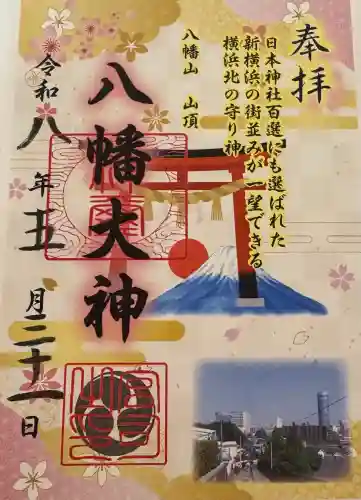 奉拝
日本神社百選にも選ばれた
新横浜の街並みが一望できる
横浜北の守り神
八幡山 山頂
八幡大神
令和八年五月二十一日